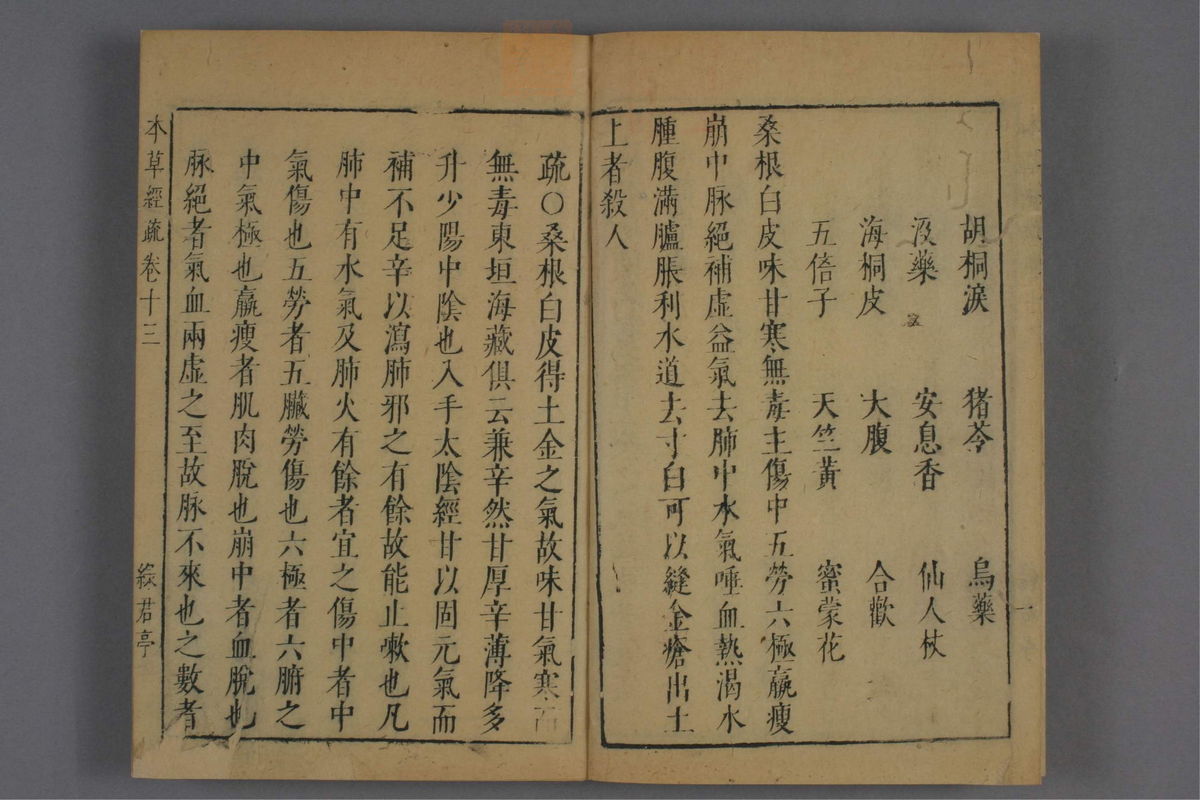 胡桐淚 猪苓 烏藥
沒藥 安息香 仙人杖
海桐皮 大腹 合歡
五倍子 天竺黃 蜜蒙花
桑根白皮味甘寒無毒主傷中五勞六極羸瘦
崩中脉絕補虛益氣去肺中水氣唾血熱渴水
腫腹滿臚脹利水道去寸白可以縫金瘡出土
上者殺人
疏〇桑根白皮得土金之氣故味甘氣寒而
無毒東垣海藏俱云兼辛然甘厚辛薄降多
升少陽中陰也入手太陰經甘以固元氣而
補不足辛以瀉肺邪之有餘故能止嗽也凡
肺中有水氣及肺火有餘者宜之傷中者中
氣傷也五勞者五臟勞傷也六極者六腑之
中氣極也羸瘦者肌肉脫也崩中者血脫也
脉絕者氣血兩虛之至故脉不來也之數者
本草經疏卷十三 綠君亭